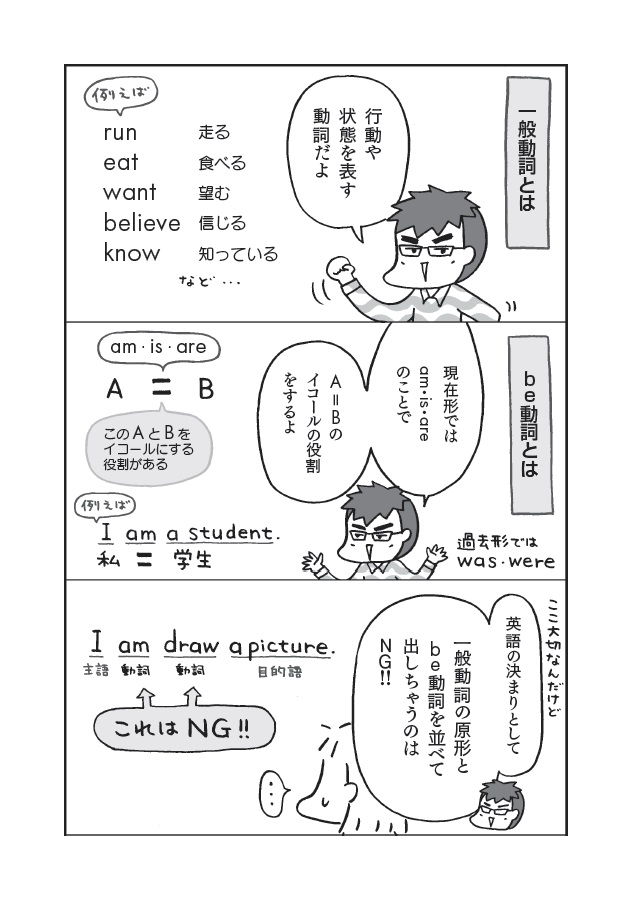 一般動詞とは
行動や
状態を表す
動詞だよ
例えば
run 走る
eat 食べる
want 望む
believe 信じる
know 知っている
など…
be動詞とは
現在形では
am・is・are
のことで
A＝Bの
イコールの役割
をするよ
am・is・are
A = B
このAとBを
イコールにする
役割がある
例えば
I am a student.
私 = 学生
過去形では
was・were
ここ大切なんだけど
英語の決まりとして
一般動詞の原形と
be動詞を並べて
出しちゃうのは
NG!!
I am draw a picture.
主語 動詞 動詞 目的語
これはNG!!
…